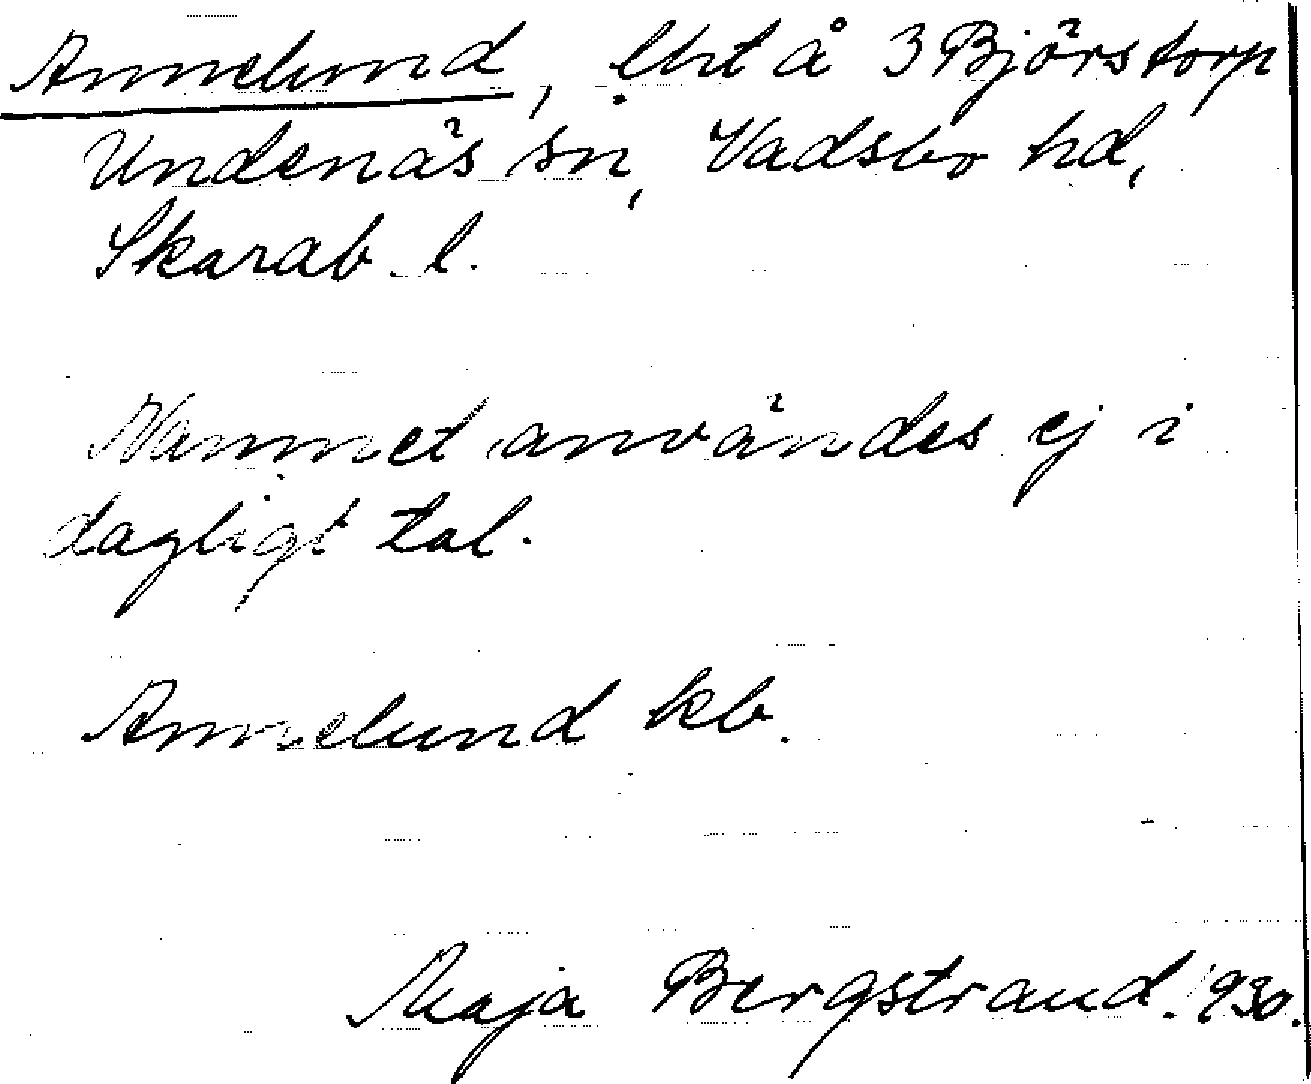 Annelund, lht å 3 Björstorp
Undenäs sn, Vadsbo hd,
Skarab. l.
Namnet användes ej i
dagligt tal.
Annelund kb.
Maja Bergstrand. 1930.